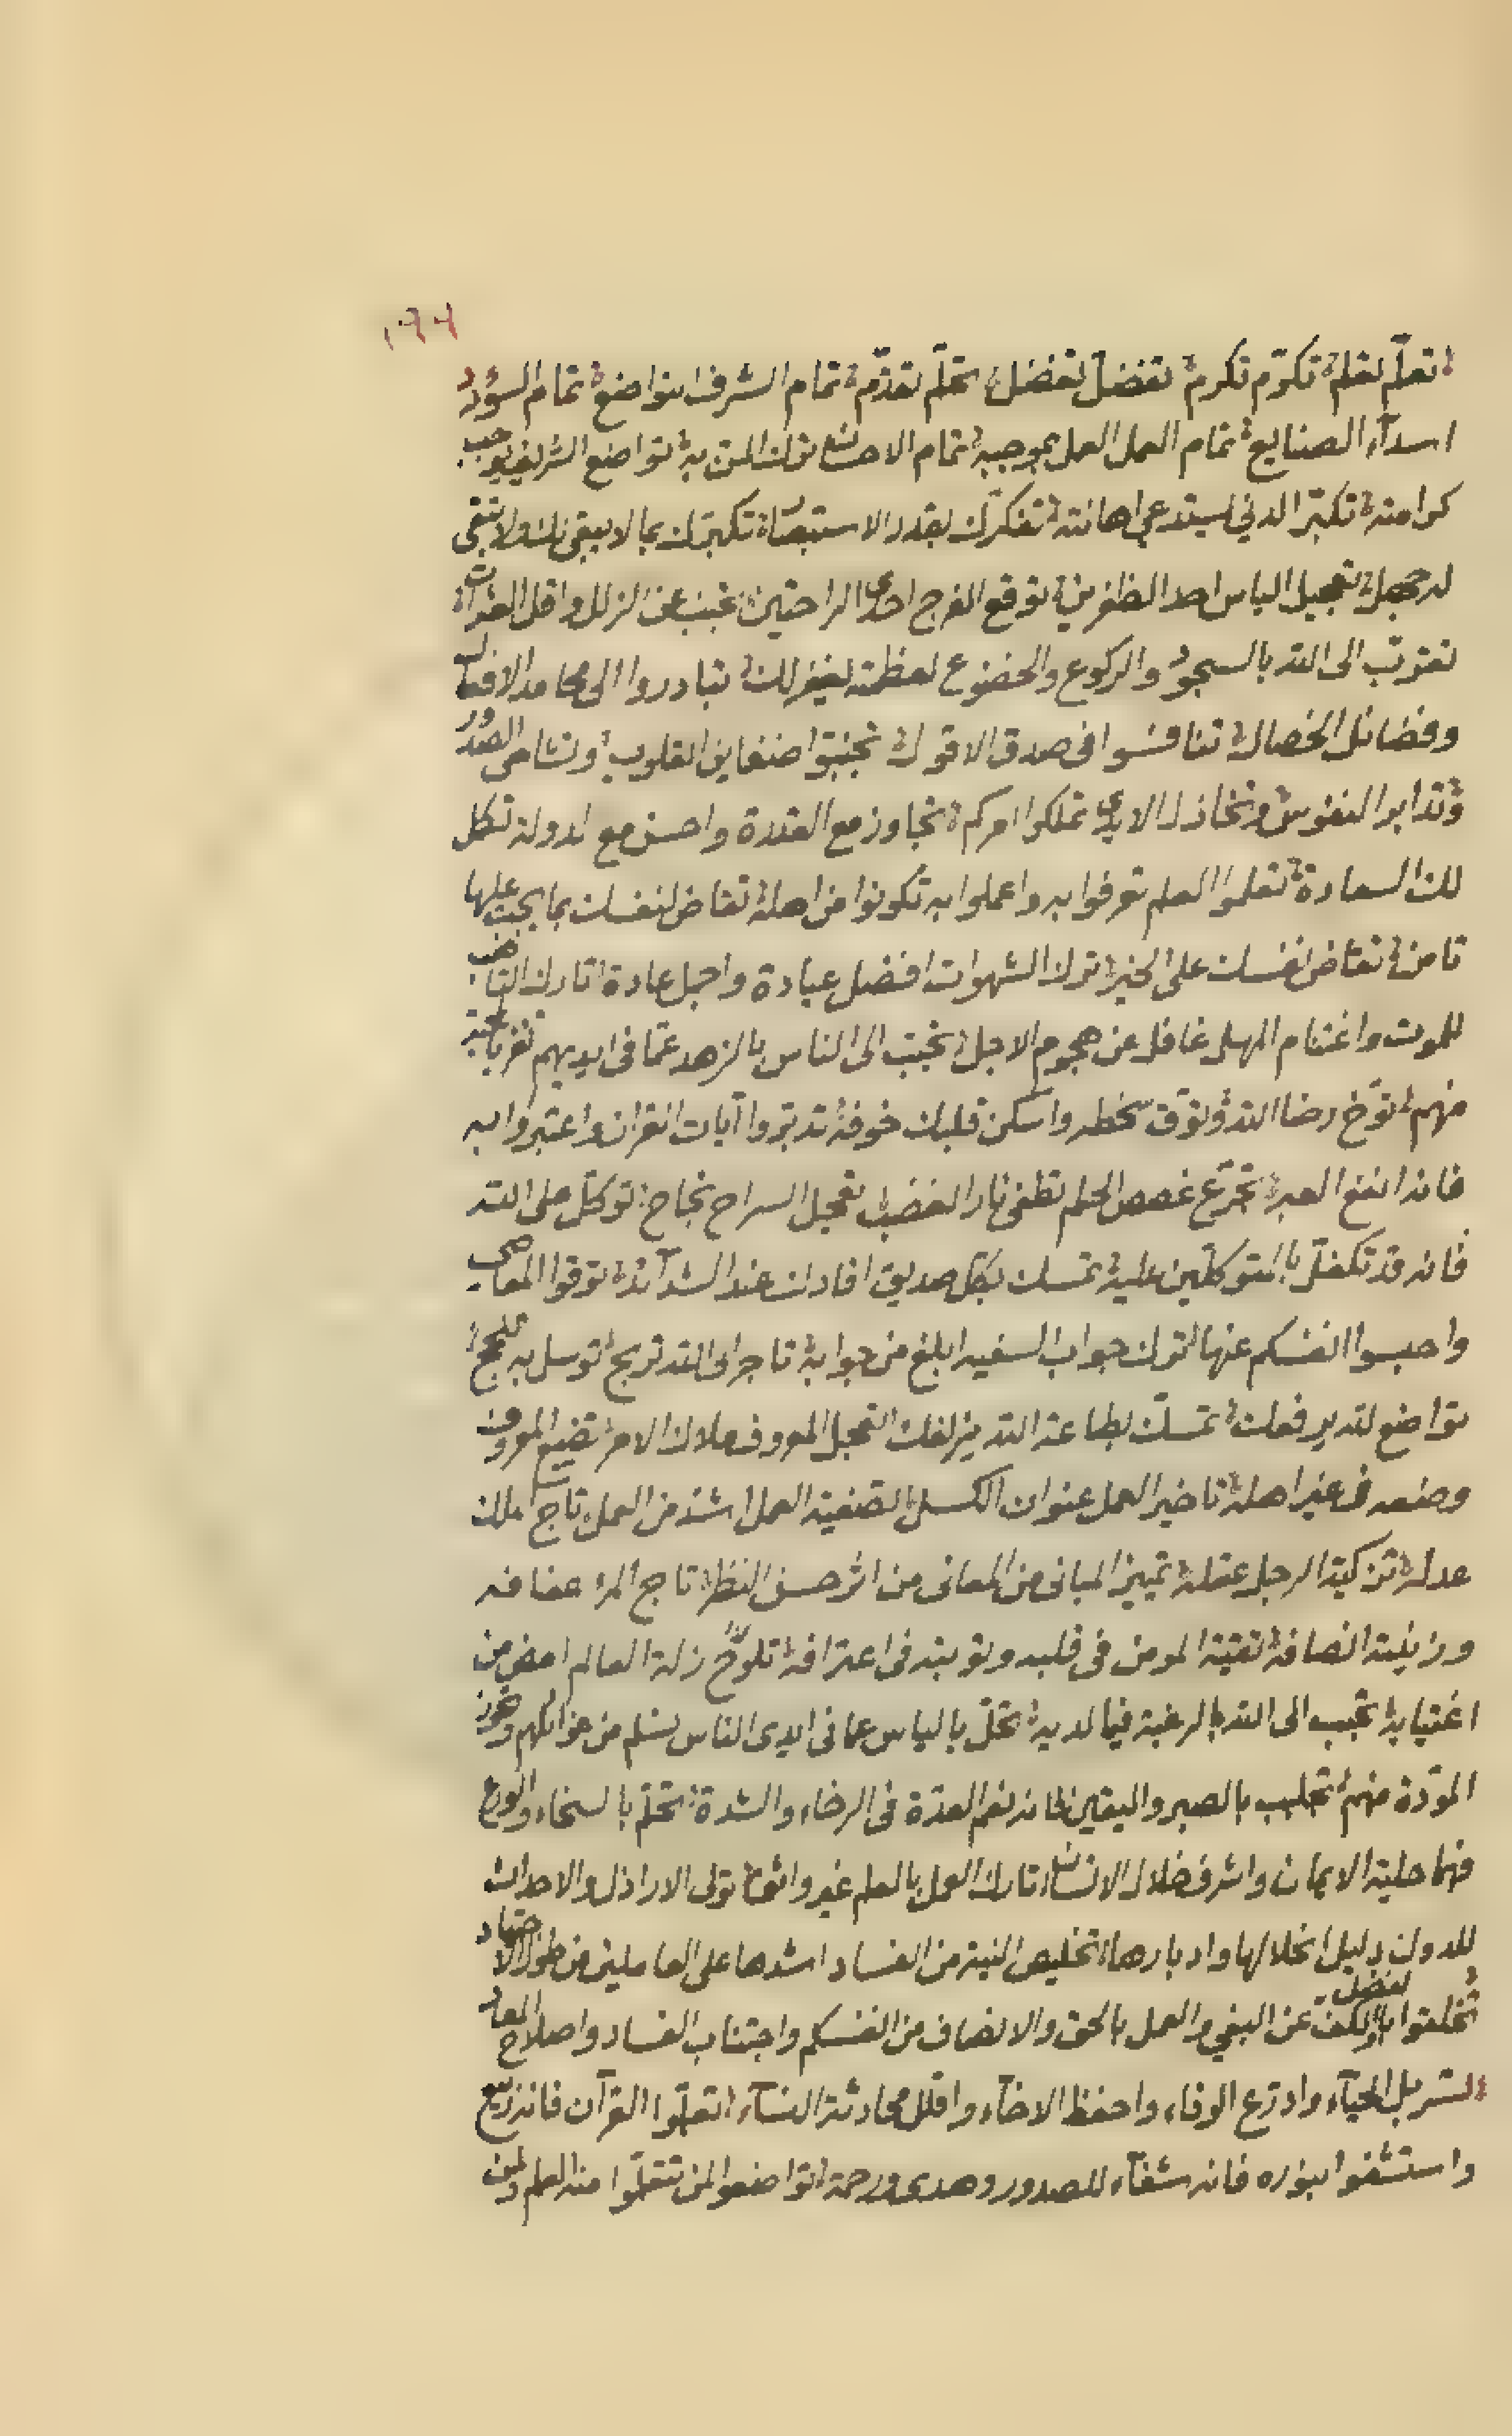 ١٩٩
تعلّم تعلم تكرّم تكرم تفضّل تفضل تحلّم تقدّم تمام الشرف التواضع تمام السؤدد
اسدآء الصنايع تمام العمل العمل بموجبه تمام الاحسان ترك المن به تواضع الشريف يوجب
كرامته تكبّر الدني يستدعي اهانته تفكرك يفدك الاستبصار تكبرك بما لا يبقى لك ولا تبقى
له جهل تعجيل الياس احد الظفرين توقع الفرج احدى الراحتين تجنب عن الزلل واقل العثرات
تقرّب الى الله بالسجود والركوع والخضوع لعظمته ليغفر لك تبادروا الى محامد الافعال
وفضائل الخصال تنافسوا في صدق الاقوال تجنبوا ضغاين القلوب وتشاحن الصدور
وتدابر النفوس وتخاذل الايدى تملكوا امركم تجاوز مع القدرة واحسن مع الدولة تكمل
لك السعادة تعلموا العلم تعرفوا به واعملوا به تكونوا من اهله تقاض لنفسك بما يجب عليها
تامن تقاض نفسك على الخير ترك الشهوات افضل عبادة واجمل عادة تارك التاهب
للموت واغتنام المهل غافل عن هجوم الاجل تحبب الى الناس بالزهد عما في ايديهم تفز بالمحبة
منهم توخ رضا الله وتوق سخطه واسكن قلبك خوفه تدبروا آيات القران واعتبروا به
فانه ابلغ العبر تجرع غصص الحلم تطفى نار الغضب تعجيل السراح نجاح توكل على الله
فانه قد تكفل بالمتوكلين عليه تمسك بكل صديق افادك عند الشدآئد توقوا المعاصي
واحبسوا انفسكم عنها ترك جواب السفيه ابلغ من جوابه تاجر الله تربح توسل به تنجح
تواضع لله يرفعك تمسك بطاعة الله يزلفك تعجيل المعروف ملاك الامر تضييع المعروف
وضعه في غير اهله تاخير العمل عنوان الكسل تصفية العمل اشد من العمل تاج الملك
عدله تزكية الرجل عقله تمييز الباقي من الفاني من اشرف النظر تاج المرء عفافه
وزينته انصافه تقية المومن في قلبه وتوبته في اعترافه تلوّح زلة العالم امض من
اغتيابه تحبب الى الله بالرغبة فيما لديه تحلّ بالياس عما في ايدى الناس تسلم من غوائلهم وتحرز
المودّة منهم تجلبب بالصبر واليقين فانه نعم العدّة في الرخاء والشدة تحلّ بالسخاء والورع
فهما حلية الايمان واشرف خلال الانسان تارك العمل بالعلم غير واثق تولى الاراذل والاحداث
للدول دليل انحلالها وادبارها تخليص النية من الفساد اشد على العاملين من طول الاجتهاد
تخلقوا بالفضل والكف عن البغي والعمل بالحق والانصاف من انفسكم واجتناب الفساد واصلاح المعاد
تسربل الحيآء وادّرع الوفاء واحفظ الاخآء واقلل محادثة النسآء تعلّموا القرآن فانه ربيع
واستشفوا بنوره فانه شفآء للصدور وهدى ورحمة تواضعوا لمن تتعلّموا منه العلم ولمن